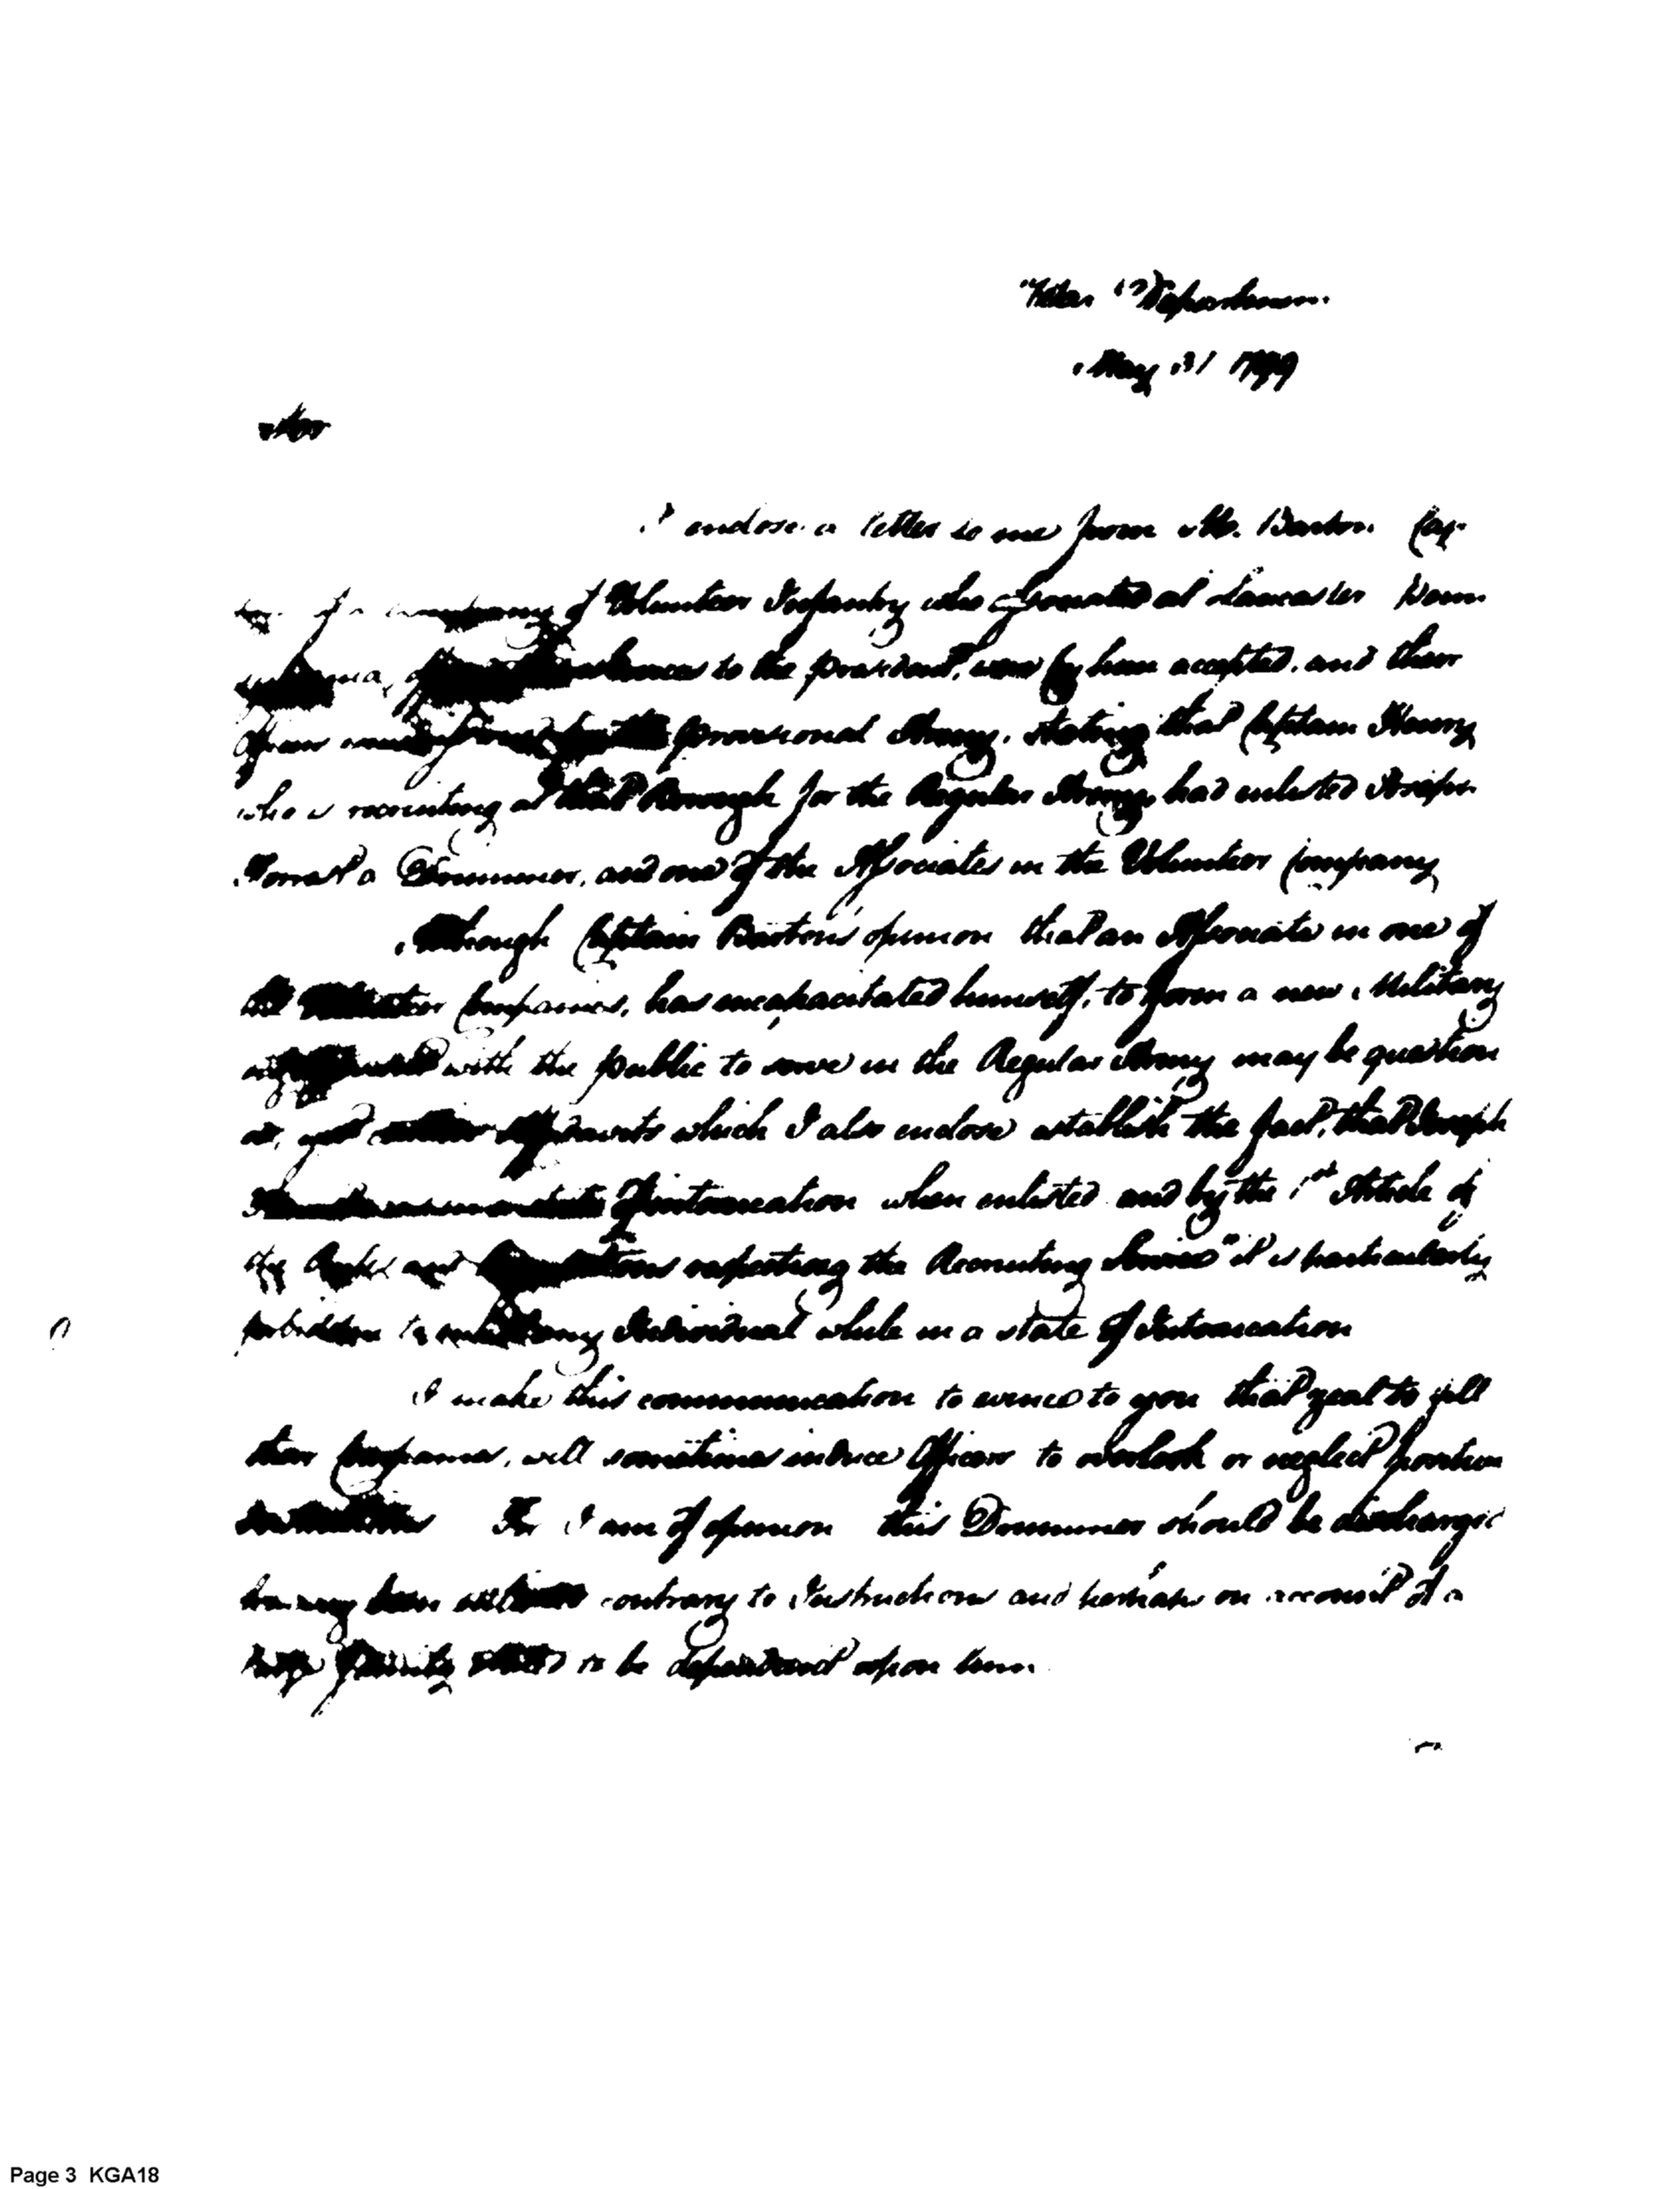 War Department
May 31 1799
Sir
I enclose a letter to me from Mr. Barton Cap
of a company of Volunteer Infantry who associated at Lancaster Penn
to the president, were by him accepted, and their
provisional Army, stating that Captain Henry
who is recruiting at that Borough for the Regular Army, had enlisted Joseph
a Drummer, and one of the Associates in the Volunteer Company
Although Captain Barton's opinion that an Associate in one of
the Volunteer Companies, has incapacitated himself, to form a new Military
with the public to serve in the Regular Army may be question
yet which I also enclose establish the fact, that Joseph
of intoxication when enlisted and by the 1st Article of
the Rules and Regulations respecting the Recruiting Service "it is particularly
forbidden to enlist any Individual while in a state of Intoxication
I make this communication to evince to you that zeal to fill
their Companies, will sometimes induce Officers to overlook or neglect positive
For I am of opinion this Drummer should be discharged
having been enlisted contrary to Instructions and perhaps on account of a
large family to be dependent upon him
Page 3 KGA18